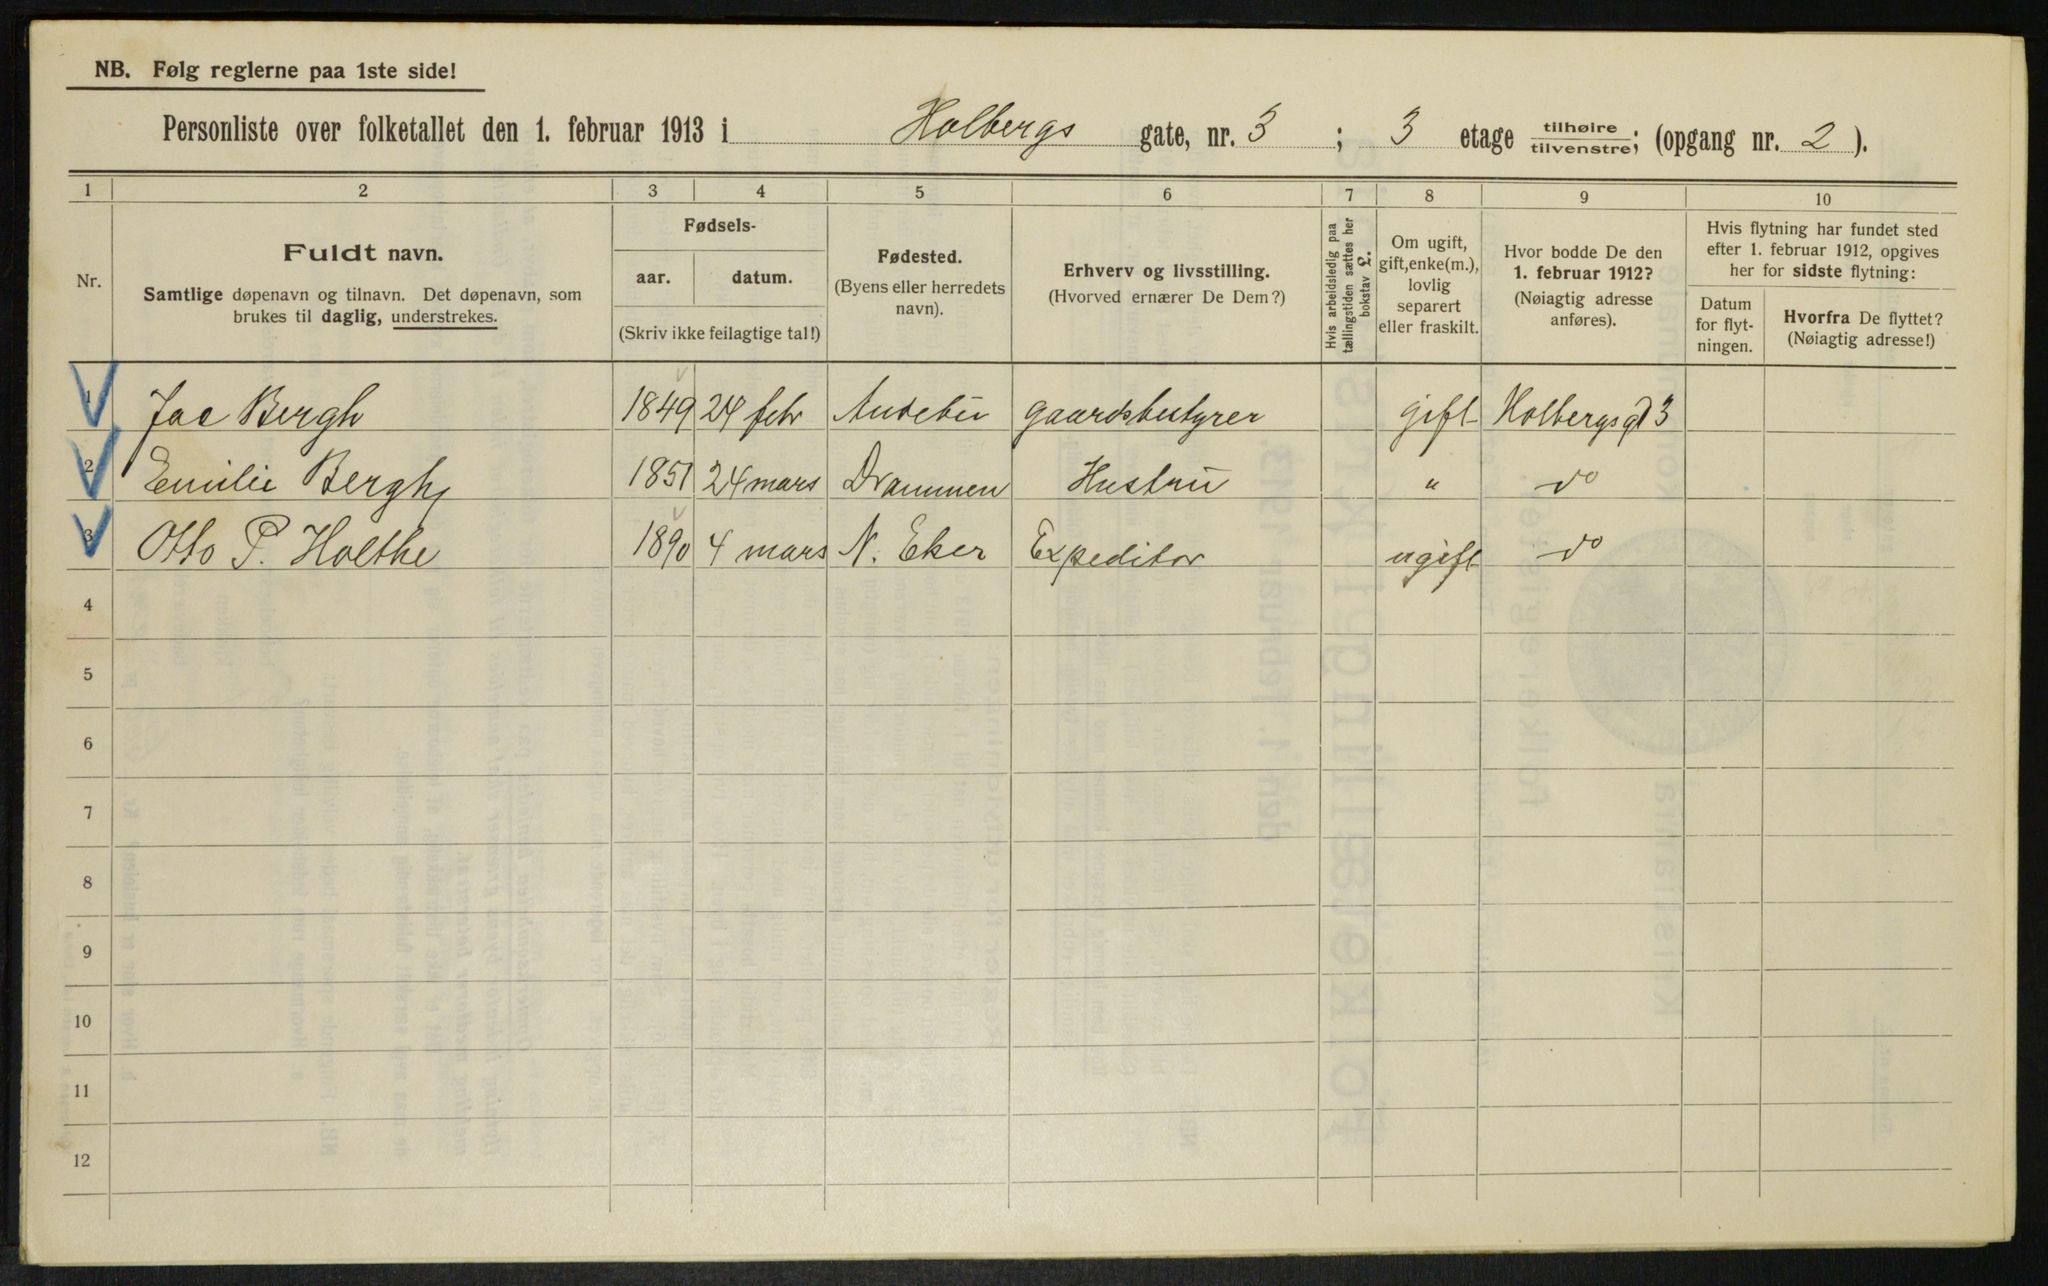 NB. Følg reglerne paa 1ste side!
Personliste over folketallet den 1. februar 1913 i Holbergs gate, nr. 3 ; 3 etage tilhøire tilvenstre; (opgang nr. 2 ).
1 2 3 4 5 6 7 8 9 10
Nr.
Fuldt navn.
Samtlige døpenavn og tilnavn. Det døpenavn, som
brukes til daglig, understrekes.
Fødsels-
aar. datum.
(Skriv ikke feilagtige tal!)
Fødested.
(Byens eller herredets
navn).
Erhverv og livsstilling.
(Hvorved ernærer De Dem?)
Hvis arbeidsledig paa
tællingstiden sættes her
bokstav l.
Om ugift,
gift, enke(m.),
lovlig
separert
eller fraskilt.
Hvor bodde De den
1. februar 1912?
(Nøiagtig adresse
anføres).
Hvis flytning har fundet sted
efter 1. februar 1912, opgives
her for sidste flytning:
Datum
for flyt-
ningen.
Hvorfra De flyttet?
(Nøiagtig adresse!)
1 Jac Bergh 1849 24 febr Andebu gaardsbestyrer gift Holbergsgt 3
2 Emilie Bergh 1851 24 mars Drammen Hustru " do
3 Otto P. Holthe 1890 4 mars N. Eker Expeditør ugift do
4
5
6
7
8
9
10
11
12